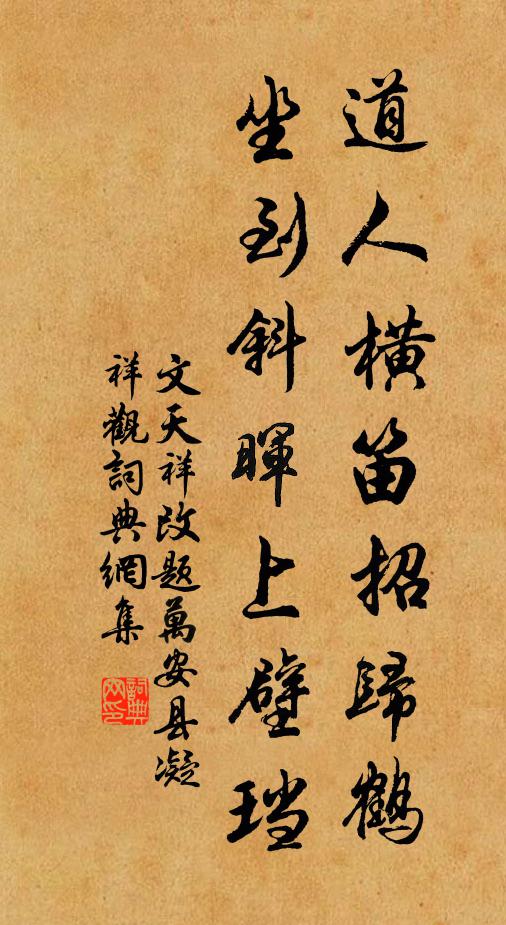 道人橫笛招歸鶴
坐到斜暉上壁珰
文天祥改題萬安县凝
祥觀詞典網集
詞典
网印